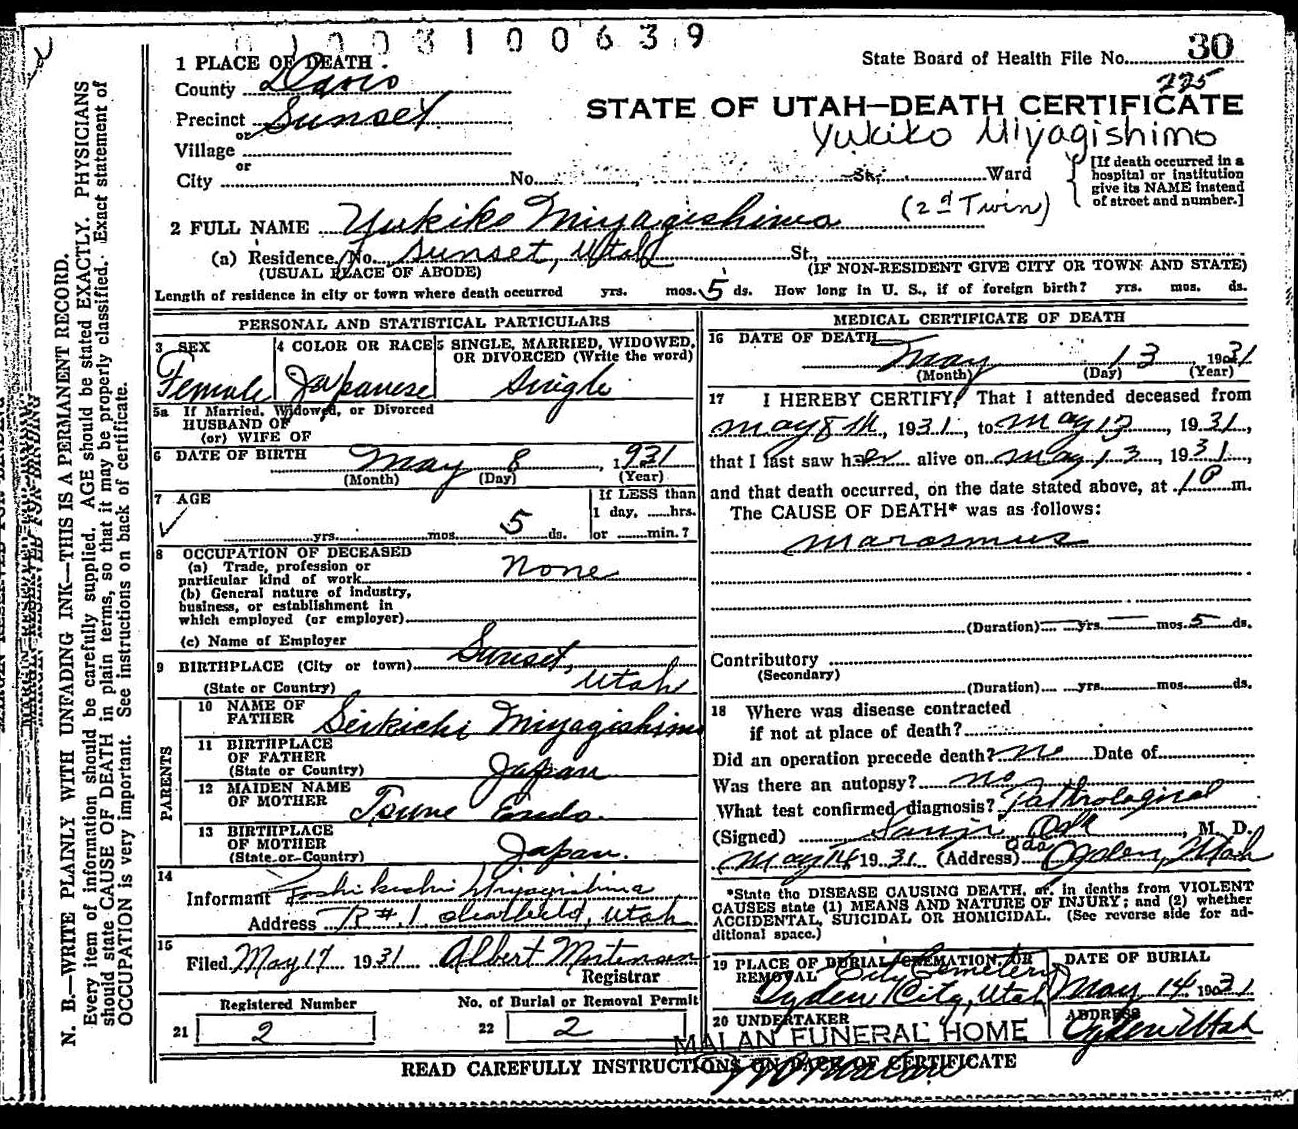 0 1 0 0 3 1 0 0 6 3 9
State Board of Health File No. 30
225
1 PLACE OF DEATH
County Davis
Precinct Sunset
or
Village
or
City No. St; Ward
STATE OF UTAH—DEATH CERTIFICATE
Yukiko Miyagishimo
[If death occurred in a
hospital or institution
give its NAME instead
of street and number.]
2 FULL NAME Yukiko Miyagishima (2nd Twin)
(a) Residence. No. Sunset, Utah St.,
(USUAL PLACE OF ABODE) (IF NON-RESIDENT GIVE CITY OR TOWN AND STATE)
Length of residence in city or town where death occurred yrs. mos. 5 ds. How long in U. S., if of foreign birth? yrs. mos. ds.
PERSONAL AND STATISTICAL PARTICULARS
3 SEX 4 COLOR OR RACE 5 SINGLE, MARRIED, WIDOWED,
OR DIVORCED (Write the word)
Female Japanese Single
5a If Married, Widowed, or Divorced
HUSBAND OF
(or) WIFE OF
6 DATE OF BIRTH May 8, 1931
(Month) (Day) (Year)
7 AGE If LESS than
1 day, ......hrs.
yrs. mos. 5 ds. or ......min.?
8 OCCUPATION OF DECEASED
(a) Trade, profession or
particular kind of work None
(b) General nature of industry,
business, or establishment in
which employed (or employer)
(c) Name of Employer
9 BIRTHPLACE (City or town) Sunset,
(State or Country) Utah
PARENTS
10 NAME OF
FATHER Seikichi Miyagishima
11 BIRTHPLACE
OF FATHER
(State or Country) Japan
12 MAIDEN NAME
OF MOTHER Tsune Endo.
13 BIRTHPLACE
OF MOTHER
(State or Country) Japan.
14
Informant Toshikichi Miyagishima
Address R #1 Clearfield, Utah
15
Filed May 17 1931 Albert Mortenson
Registrar
Registered Number No. of Burial or Removal Permit
21 2 22 2
MEDICAL CERTIFICATE OF DEATH
16 DATE OF DEATH May 13, 1931
(Month) (Day) (Year)
17 I HEREBY CERTIFY, That I attended deceased from
May 8th, 1931, to May 13, 1931,
that I last saw her alive on May 13, 1931,
and that death occurred, on the date stated above, at 10 m.
The CAUSE OF DEATH* was as follows:
Marasmus
(Duration) — yrs. — mos. 5 ds.
Contributory
(Secondary)
(Duration) yrs. mos. ds.
18 Where was disease contracted
if not at place of death?
Did an operation precede death? no Date of
Was there an autopsy? no
What test confirmed diagnosis? Pathological
(Signed) Oda, M. D.
Oda
May 14 1931 (Address) Ogden, Utah
*State the DISEASE CAUSING DEATH, or, in deaths from VIOLENT
CAUSES state (1) MEANS AND NATURE OF INJURY; and (2) whether
ACCIDENTAL, SUICIDAL OR HOMICIDAL. (See reverse side for ad-
ditional space.)
19 PLACE OF BURIAL, CREMATION, OR DATE OF BURIAL
REMOVAL City Cemetery
Ogden City, Utah May 14 1931
20 UNDERTAKER ADDRESS
MALAN FUNERAL HOME Ogden Utah
READ CAREFULLY INSTRUCTIONS ON BACK OF CERTIFICATE
MARGIN RESERVED FOR BINDING
N. B.—WRITE PLAINLY WITH UNFADING INK—THIS IS A PERMANENT RECORD.
Every item of information should be carefully supplied. AGE should be stated EXACTLY. PHYSICIANS
should state CAUSE OF DEATH in plain terms, so that it may be properly classified. Exact statement of
OCCUPATION is very important. See instructions on back of certificate.